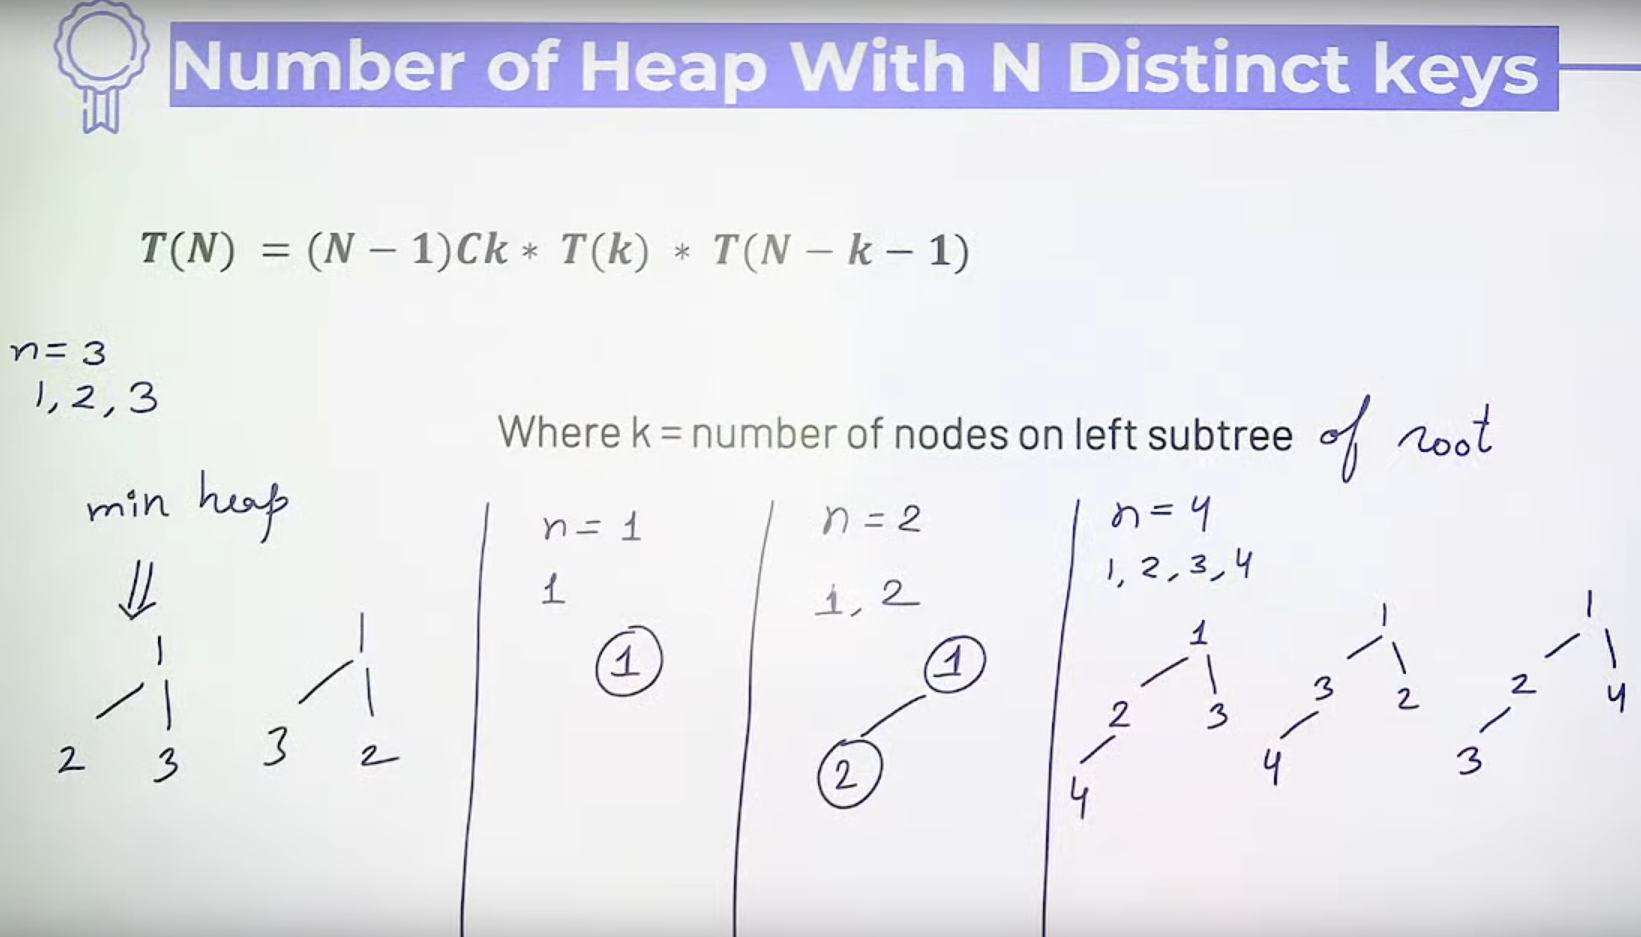 Number of Heap With N Distinct keys
T(N) = (N − 1)Ck * T(k) * T(N − k − 1)
n = 3
1, 2, 3
Where k = number of nodes on left subtree of root
min heap
1
2 3
1
3 2
n = 1
1
1
n = 2
1, 2
1
2
n = 4
1, 2, 3, 4
1
2 3
4
1
3 2
4
1
2 4
3